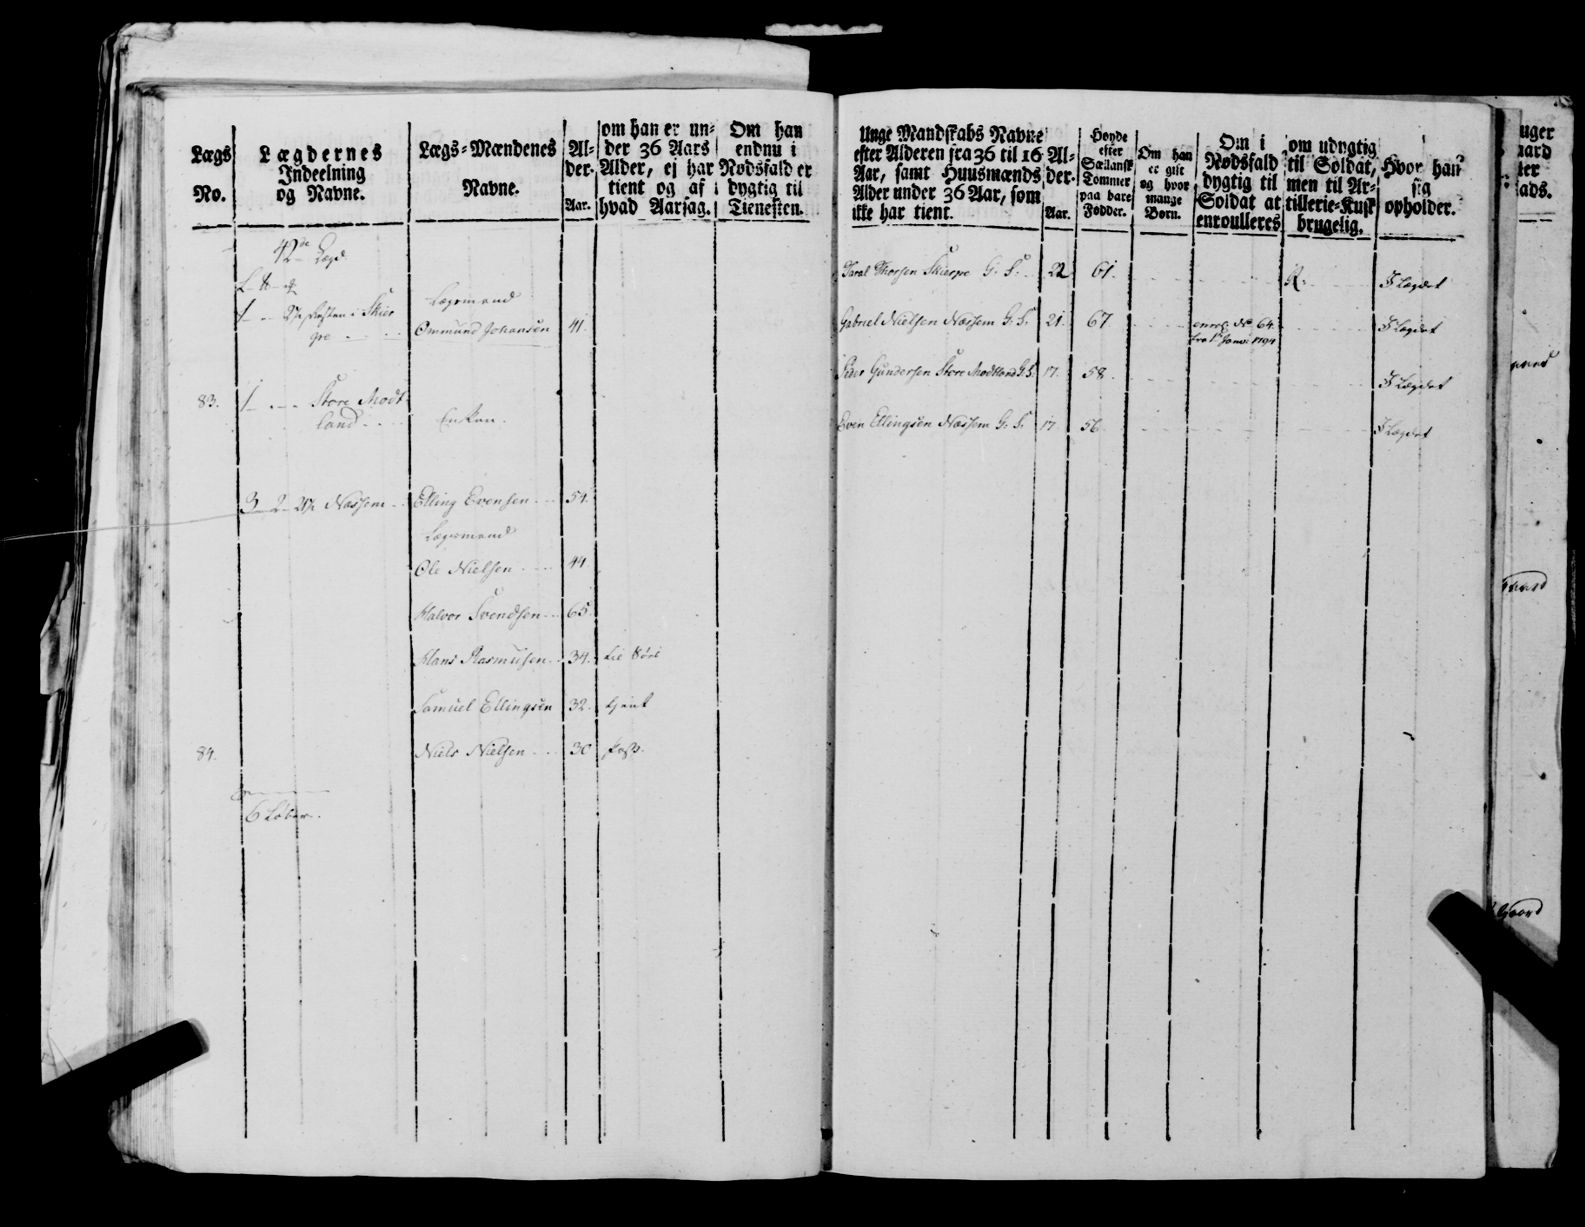 Lægs
No.
Lægdernes
Indeelning
og Navne.
Lægs-Mændenes
Navne.
Al-
der.
Aar.
om han er un-
der 36 Aars
Alder, ej har
tient og af
hvad Aarsag.
Om han
endnu i
Nødsfald er
dygtig til
Tienesten.
42de Lægd
1 - Skier
pe
Lægsmand
Ommund Johansen 41.
83. 1 - Store Modt
land
Enken.
3 2 Næssem Elling Evensen 54.
Lægsmand
Ole Nielsen 44
Halvor Svendsen 65
Hans Rasmusen 34.
Samuel Ellingsen 32. tjent
84. Niels Nielsen 30
6 Løber.
Unge Mandskabs Navne
efter Alderen fra 36 til 16
Aar, samt Huusmænds
Alder under 36 Aar, som
ikke har tient.
Al-
der.
Aar.
Høyde
efter
Sællansk
Tommer
paa bare
Fødder.
Om han
er gift
og hvor
mange
Børn.
Om i
Nødsfald
dygtig til
Soldat at
enroulleres
om udygtig
til Soldat,
men til Ar-
tillerie-Kusk
brugelig.
Hvor han
sig
opholder.
Taral Thorsen Skierpe G. S. 22 61. I Lægdet
Gabriel Nielsen Næssem G. S. 21. 67 enro: No 64. I Lægdet
fra 1 Janv: 1794
Peder Gundersen Store Modtland G. S. 17. 58. I Lægdet
Even Ellingsen Næssem G. S. 17 56 I Lægdet